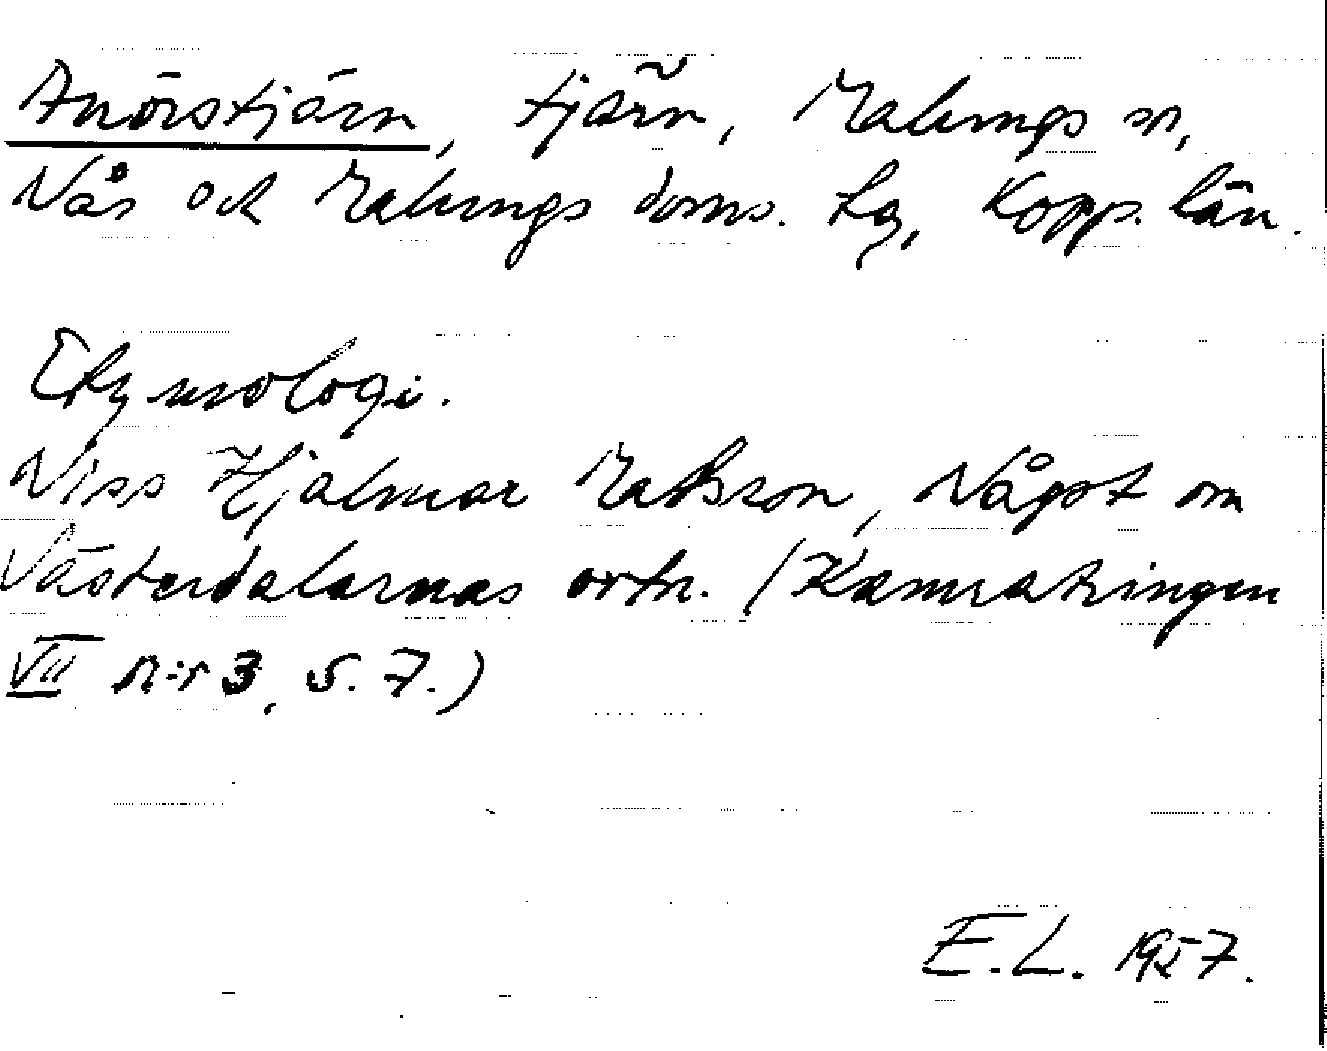 Anörstjärn, tjärn, Malungs sn,
Nås och Malungs doms. lg, Kopp. län.
Etymologi.
Niss Hjalmar Matsson, Något om
Västerdalarnas ortn. (Kamratringen
VII n:r 3, s. 7.)
E.L. 1957.